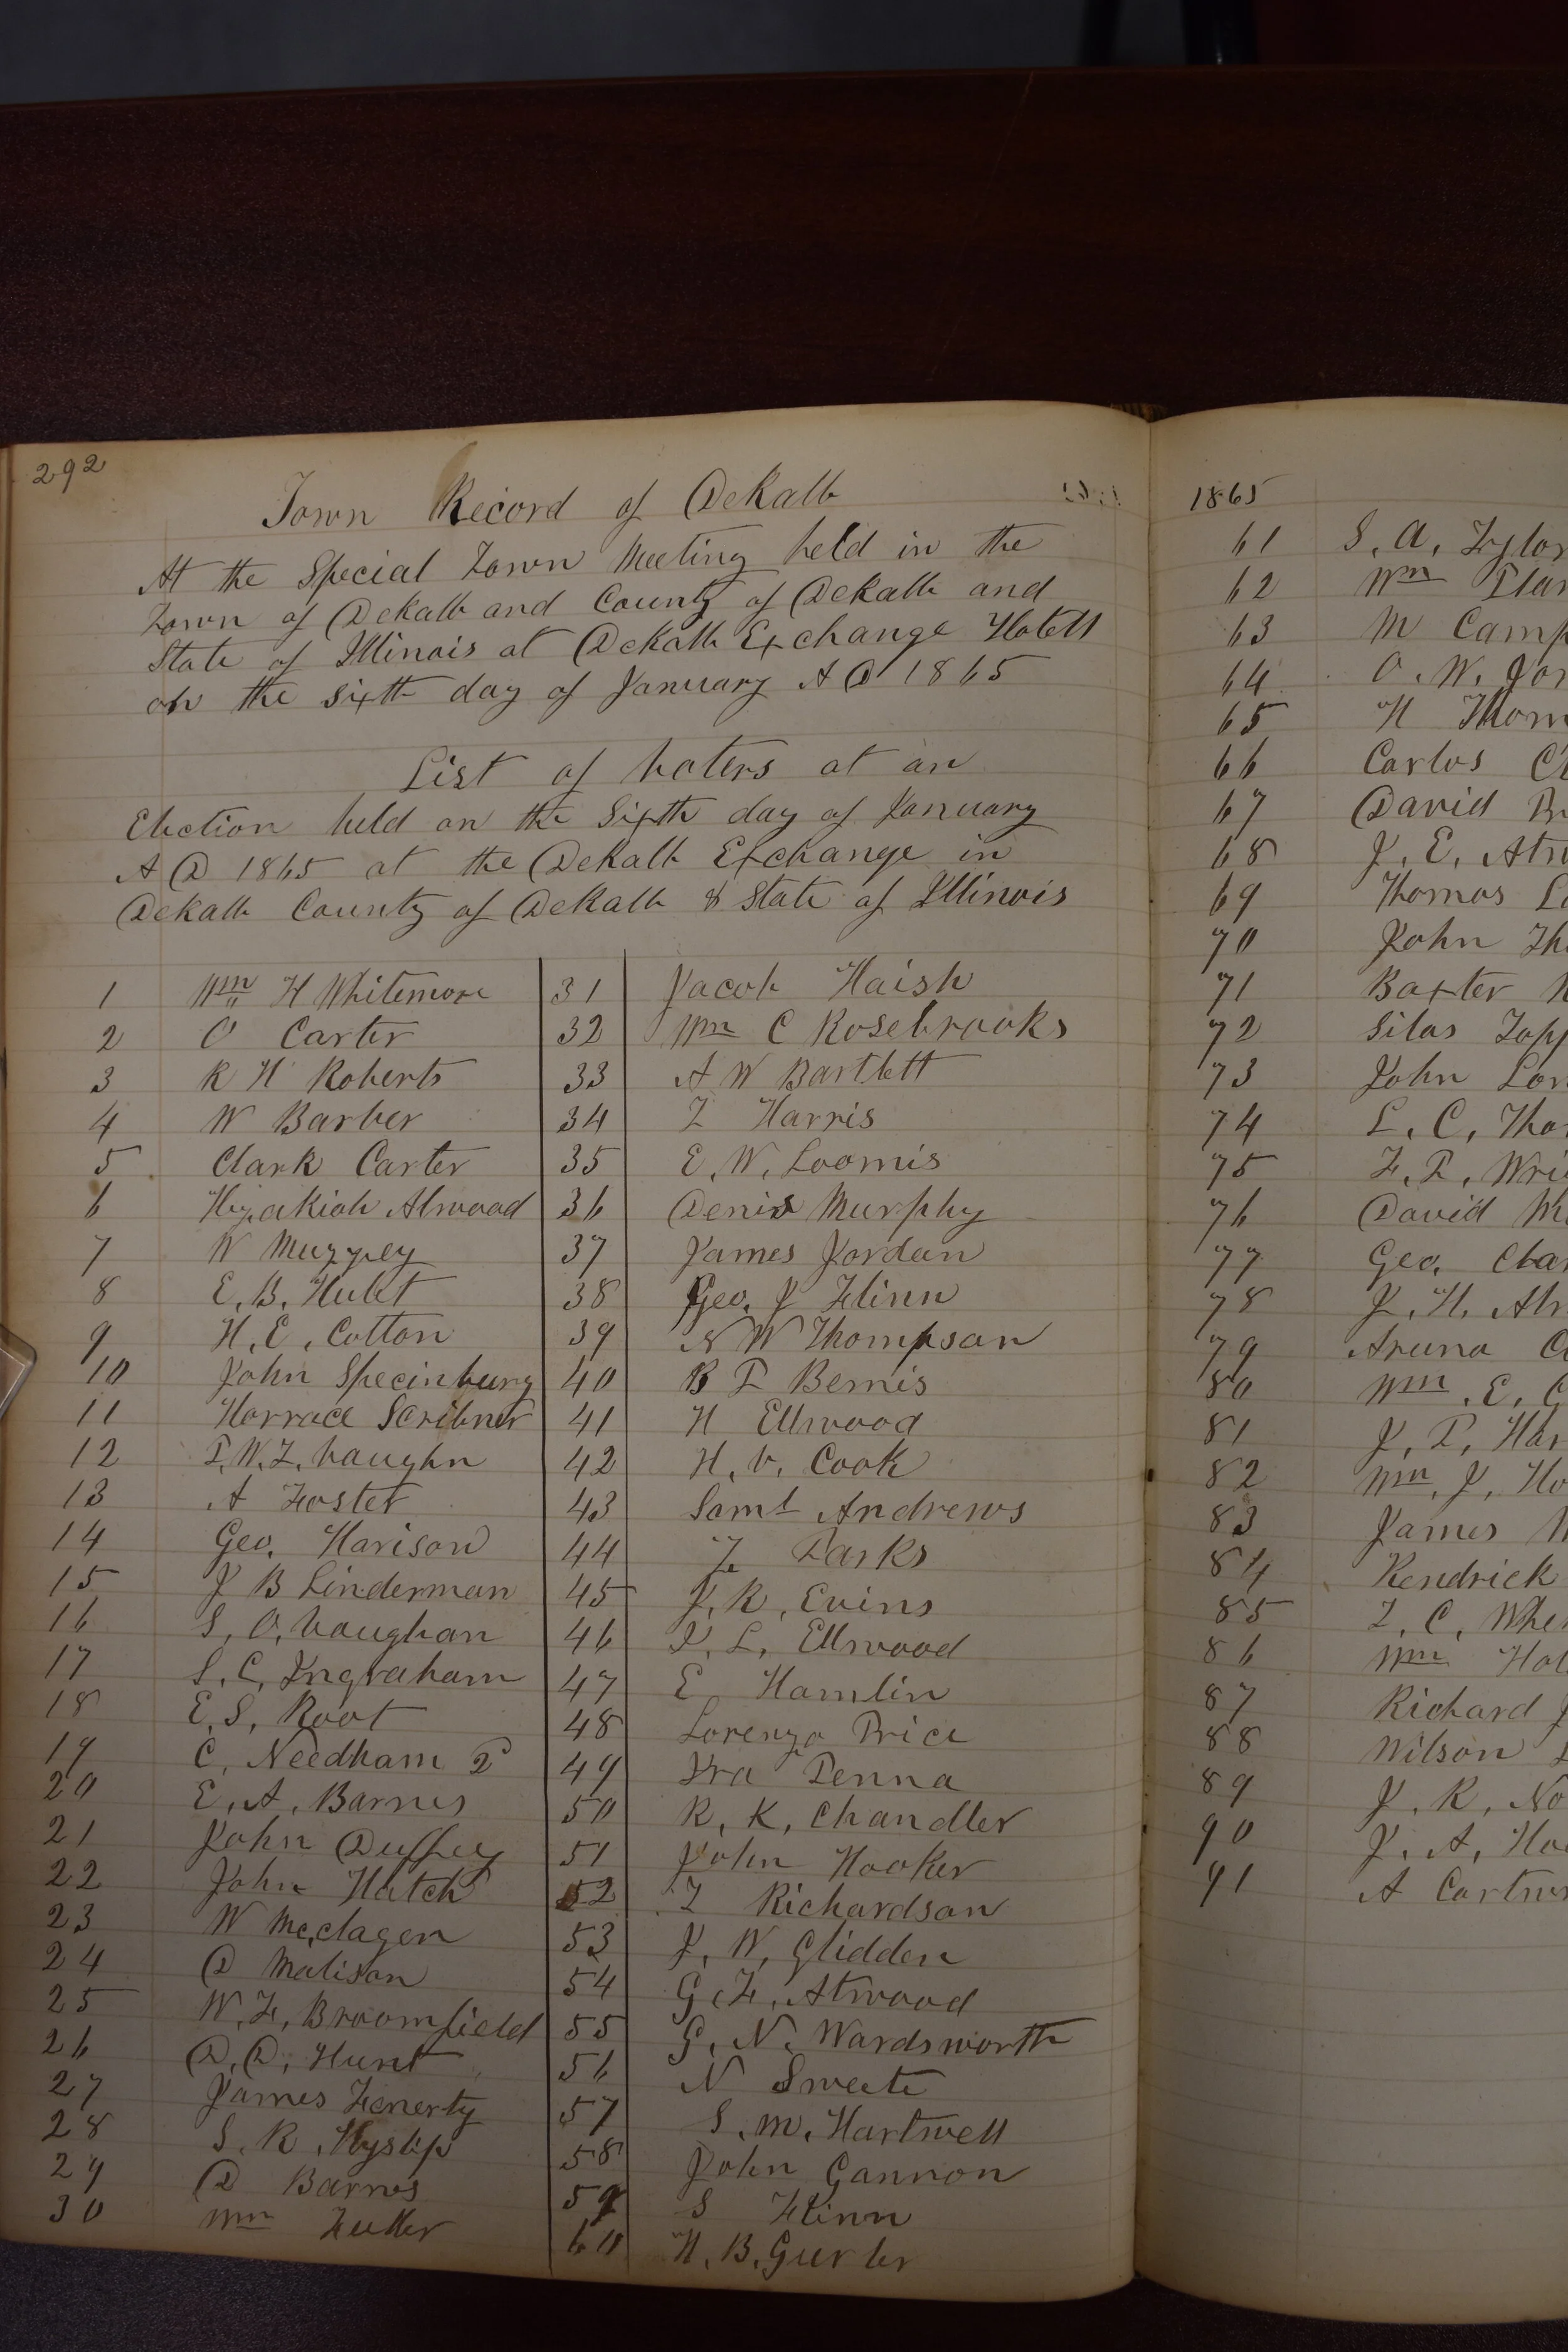 292
Town Record of DeKalb
At the Special Town Meeting held in the
Town of DeKalb and County of DeKalb and
State of Illinois at DeKalb Exchange Hotell
on the sixth day of January A D 1865
List of voters at an
Election held on the Sixth day of January
A D 1865 at the DeKalb Exchange in
DeKalb County of DeKalb & State of Illinois
1 Wm H Whitemore
2 O Carter
3 R H Roberts
4 W Barber
5 Clark Carter
6 Hezakiah Atwood
7 W Muzzey
8 E. B. Hulet
9 H. E. Cotton
10 John Specinburg
11 Horrace Scribner
12 T. W. Z. Vaughn
13 A Foster
14 Geo. Harison
15 J B Linderman
16 S. O. Vaughan
17 S. C. Ingraham
18 E. S. Root
19 C. Needham 2d
20 E. A. Barnes
21 John Duffey
22 John Hatch
23 W McClagen
24 D Malison
25 W. F. Broomfield
26 D. D. Hunt
27 James Fenerty
28 S. R. Hyslip
29 D Barnes
30 Wm Fuller
31 Jacob Haish
32 Wm C Rosebrooks
33 A W Bartlett
34 Z Harris
35 E. W. Loomis
36 Denis Murphy
37 James Jordan
38 Geo. J Flinn
39 N W Thompson
40 B T Bemis
41 H Ellwood
42 H. V. Cook
43 Saml Andrews
44 Parks
45 J. R. Evins
46 I. L. Ellwood
47 E Hamlin
48 Lorenzo Price
49 Ira Penna
50 R. K. Chandler
51 John Hooker
52 Richardson
53 J. W. Glidden
54 G. F. Atwood
55 G. N. Wardsworth
56 N Sweete
57 S. M. Hartwell
58 John Gannon
59 S Flinn
60 H. B. Gurler
1865
61 S. A. Tylor
62 Wm
63 M Camp
64 O. W. Jor
65 H Thom
66 Carlos
67 David
68 J. E. Atw
69 Thomas
70 John
71 Baxter
72 Silas
73 John
74 L. C. Tho
75 F. P. Wri
76 David
77 Geo. Clar
78 J. H. Atw
79 Aruna
80 Wm. E.
81 J. P. Har
82 Wm. J. Ho
83 James
84 Kendrick
85 C. Whe
86 Wm Hol
87 Richard
88 Wilson
89 J. R. No
90 J. A. Hoo
91 A Cartwr